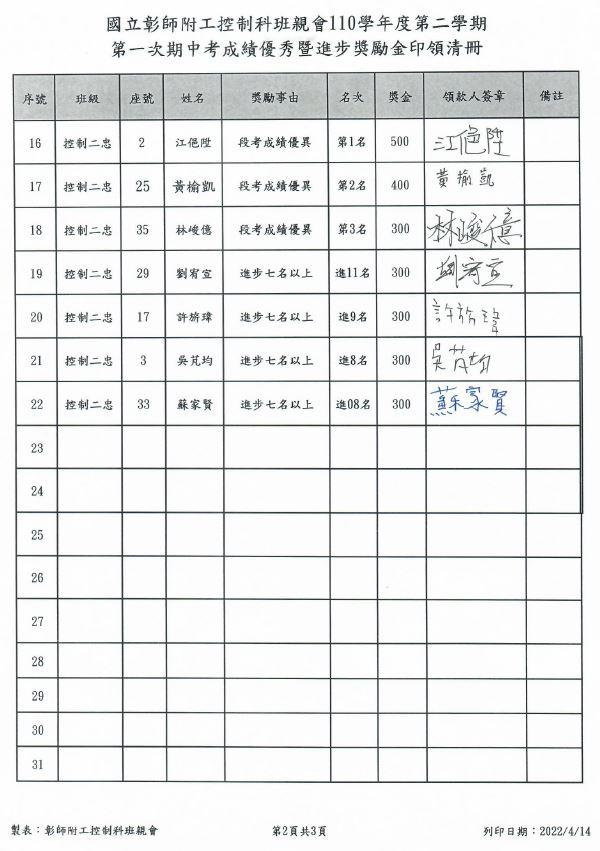 國立彰師附工控制科班親會110學年度第二學期
第一次期中考成績優秀暨進步獎勵金印領清冊
序號 班級 座號 姓名 獎勵事由 名次 獎金 領款人簽章 備註
16 控制二忠 2 江俋陞 段考成績優異 第1名 500 江俋陞
17 控制二忠 25 黃榆凱 段考成績優異 第2名 400 黃榆凱
18 控制二忠 35 林峻億 段考成績優異 第3名 300 林峻億
19 控制二忠 29 劉宥宣 進步七名以上 進11名 300 劉宥宣
20 控制二忠 17 許旂瑋 進步七名以上 進9名 300 許旂瑋
21 控制二忠 3 吳芃均 進步七名以上 進8名 300 吳芃均
22 控制二忠 33 蘇家賢 進步七名以上 進08名 300 蘇家賢
23
24
25
26
27
28
29
30
31
製表：彰師附工控制科班親會 第2頁共3頁 列印日期：2022/4/14